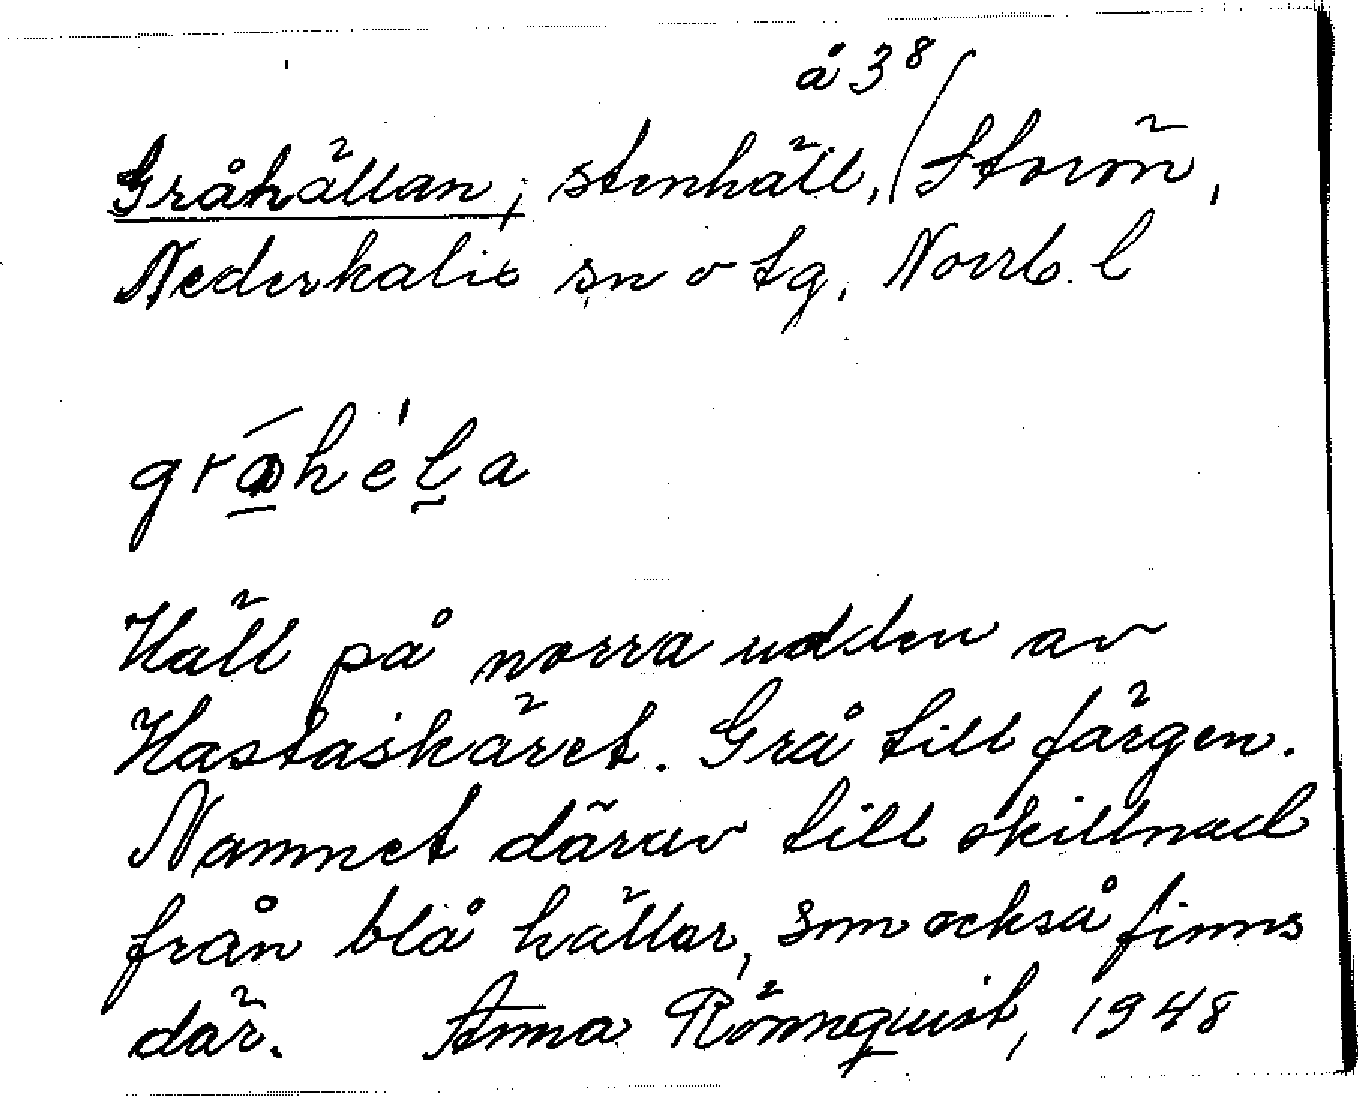 å 3⁸
Gråhällan, stenhäll, / Storön,
Nederkalix sn o tg, Norrb. l
gråhéla
Häll på norra udden av
Hastaskäret. Grå till färgen.
Namnet därav till skillnad
från blå hällar, som också finns
där. Anna Rönnquist, 1948